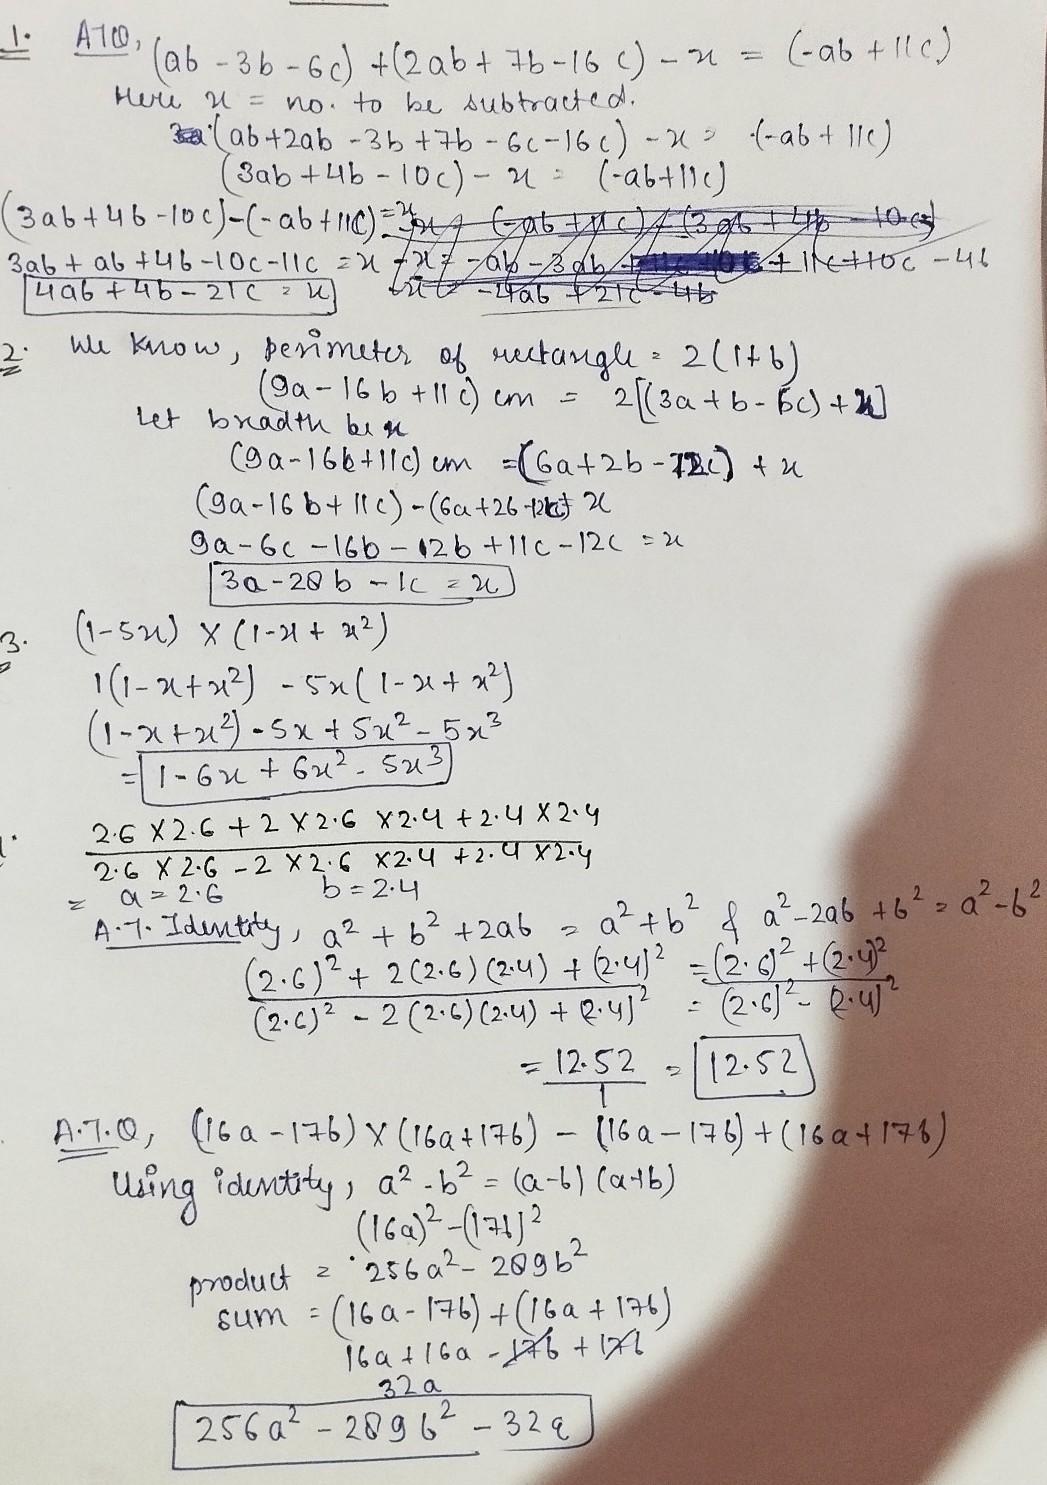 1. ATQ, (ab - 3b - 6c) + (2ab + 7b - 16c) - x = (-ab + 11c)
Here x = no. to be subtracted.
(ab + 2ab - 3b + 7b - 6c - 16c) - x = (-ab + 11c)
(3ab + 4b - 10c) - x = (-ab + 11c)
(3ab + 4b - 10c) - (-ab + 11c) = x
3ab + ab + 4b - 10c - 11c = x
4ab + 4b - 21c = x
2. We know, perimeter of rectangle = 2(l+b)
(9a - 16b + 11c) cm = 2[(3a + b - 6c) + x]
Let breadth be x
(9a - 16b + 11c) cm = (6a + 2b - 12c) + x
(9a - 16b + 11c) - (6a + 2b - 12c) = x
9a - 6c - 16b - 12b + 11c - 12c = x
3a - 28b - 1c = x
3. (1 - 5x) × (1 - x + x²)
1(1 - x + x²) - 5x(1 - x + x²)
(1 - x + x²) - 5x + 5x² - 5x³
= 1 - 6x + 6x² - 5x³
2.6 × 2.6 + 2 × 2.6 × 2.4 + 2.4 × 2.4
2.6 × 2.6 - 2 × 2.6 × 2.4 + 2.4 × 2.4
= a = 2.6 b = 2.4
A.T. Identity, a² + b² + 2ab = a² + b² & a² - 2ab + b² = a² - b²
(2.6)² + 2(2.6)(2.4) + (2.4)² = (2.6)² + (2.4)²
(2.6)² - 2(2.6)(2.4) + (2.4)² = (2.6)² - (2.4)²
= 12.52 = 12.52
1
A.T.Q, (16a - 17b) × (16a + 17b) - (16a - 17b) + (16a + 17b)
Using identity, a² - b² = (a-b) (a+b)
(16a)² - (17b)²
product = 256a² - 289b²
sum = (16a - 17b) + (16a + 17b)
16a + 16a - 17b + 17b
32a
256a² - 289b² - 32a